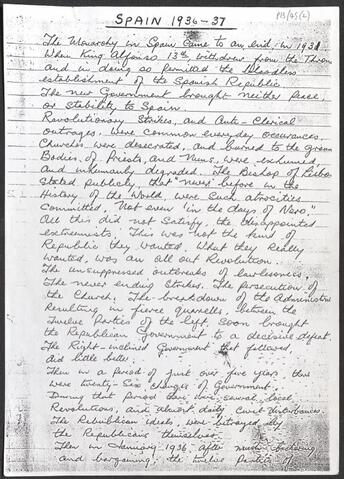 SPAIN 1936-37
The Monarchy in Spain Came to an end, in 1931
When King Alfonso 13th, withdrew from the Throne
and in doing so permitted the Bloodless
establishment of the Spanish Republic.
The new Government brought neither peace,
or Stability to Spain.
Revolutionary Strikes, and Anti-Clerical
outrages, were common everyday occurances.
Churches were desecrated, and burned to the ground
Bodies, of Priests, and Nuns, were exhumed,
and inhumanly degraded. The Bishop of
Stated publicly, that "never before in the
History of the World, were Such atrocities
Committed, Not even "in the days of Nero."
All this did not Satisfy, the disappointed
extremists. This was not the kind of
Republic they wanted. What they Really
wanted, was an all out Revolution.
The unsuppressed outbreaks of lawlessness,
The never ending Strikes. The persecution of
the Church. The breakdown of the
Resulting in fierce quarrells, between the
Twelve Parties of the left, Soon brought
the Republican Government to a decisive defeat.
The Right-inclined Government that followed,
did little better.
Then in a period of just over five years there
were twenty-Six changes of Government.
During that period local
Revolutions, and almost daily Civil disturbances.
The Republican ideals, were betrayed by
the Republicans themselves.
Then in January 1936, after much
and bargaining, the twelve Parties of